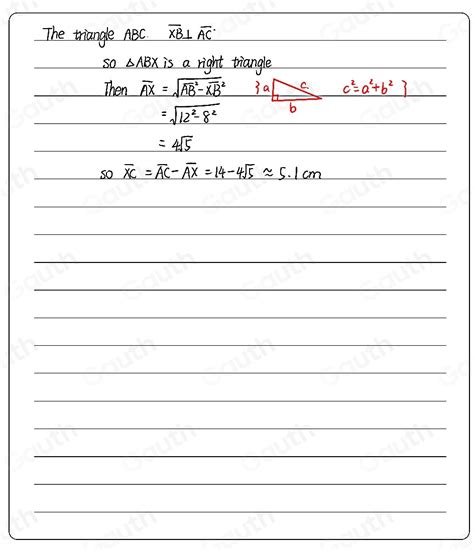 The triangle ABC. XB⊥ AC.
so △ABX is a right triangle
Then AX = √AB²-XB² } a c b c²=a²+b² }
= √12²-8²
= 4√5
so XC = AC - AX = 14-4√5 ≈ 5.1cm
Gauth